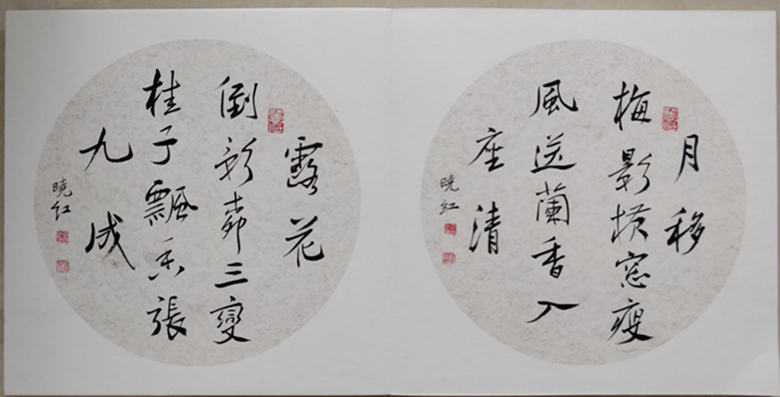 月移
梅影横窓瘦
風送蘭香入
座清
曉紅
露花
倒影柳三變
桂子飄香張
九成
曉紅